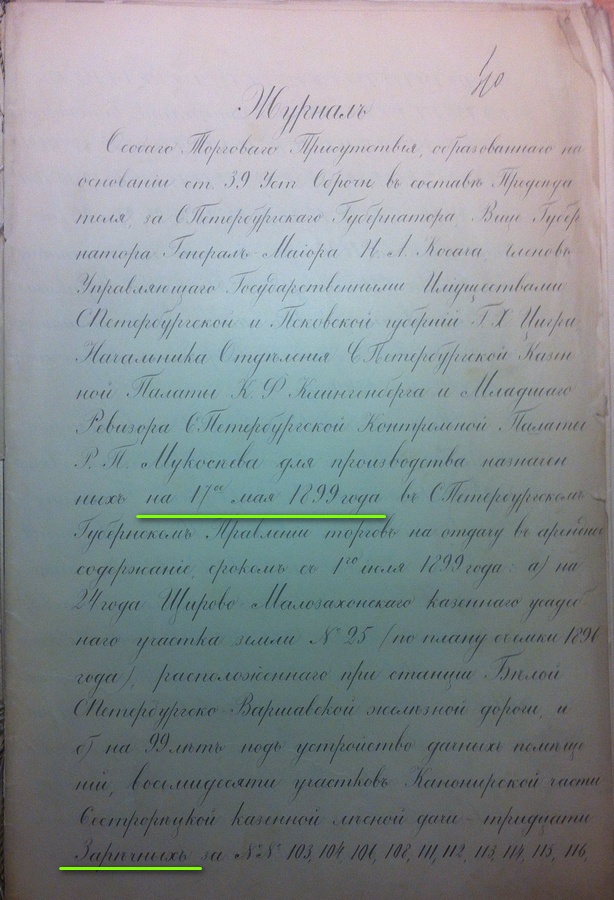 40
Журналъ
Особаго Торговаго Присутствія, образованнаго на
основаніи ст. 39 Уст Оброчн въ составѣ Предсѣда
теля, за СПетербургскаго Губернатора, Вице Губер
натора Генералъ Маіора И. А. Косача, членовъ
Управляющаго Государственными Имуществами
СПетербургской и Псковской губерній Г. Х
Начальника Отдѣленія СПетербургской Казен
ной Палаты К. Ф Клингенберга и Младшаго
Ревизора СПетербургской Контрольной Палаты
Р. П. Мукосѣева для производства назначен
ныхъ на 17ое мая 1899 года въ СПетербургскомъ
Губернскомъ Правленіи торговъ на отдачу въ арендное
содержаніе, срокомъ съ 1го іюля 1899 года: а) на
24 года Щирово Малозахонскаго казеннаго усадеб
наго участка земли № 25 (по плану съемки 1896
года), расположеннаго при станціи Бѣлой
СПетербургско Варшавской желѣзной дороги, и
б) на 99 лѣтъ подъ устройство дачныхъ помѣще
ній, восьмидесяти участковъ Канонирской части
Сестрорѣцкой казенной лѣсной дачи – тридцати
Зарѣчныхъ за №№ 103, 104, 106, 108, 111, 112, 113, 114, 115, 116,